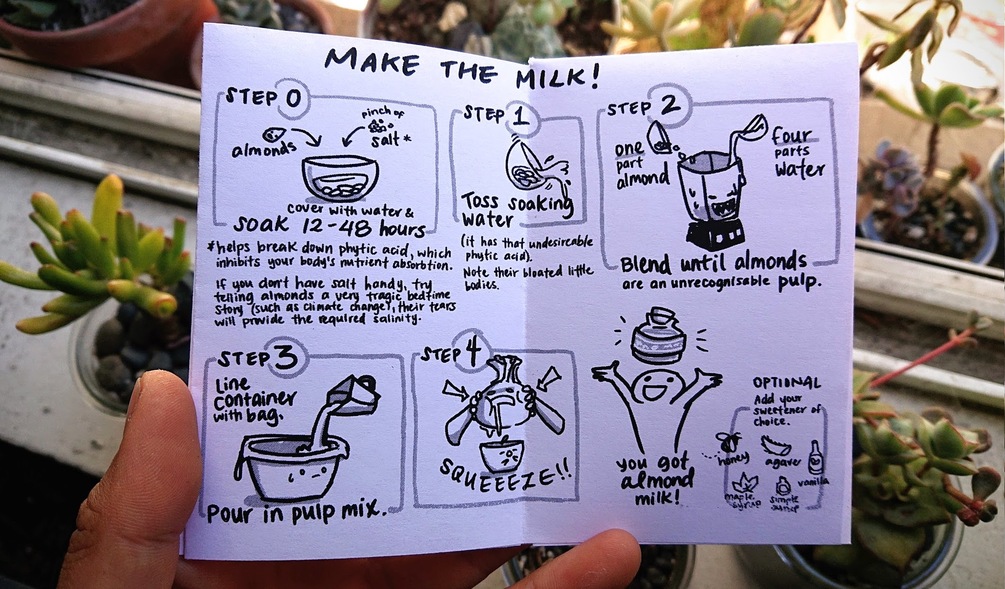 MAKE THE MILK!
STEP 0
almonds
pinch of
salt*
cover with water &
soak 12-48 hours
*helps break down phytic acid, which
inhibits your body's nutrient absorbtion.
If you don't have salt handy, try
telling almonds a very tragic bedtime
story (such as climate change), their tears
will provide the required salinity.
STEP 1
Toss soaking
water
(it has that undesircable
phytic acid).
Note their bloated little
bodies.
STEP 2
one
part
almond
four
parts
water
Blend until almonds
are an unrecognisable pulp.
STEP 3
Line
container
with bag.
Pour in pulp mix.
STEP 4
SQUEEEZE!!
you got
almond
milk!
OPTIONAL
Add your
sweetener of
choice.
honey
agave
vanilla
maple
syrup
simple
syrup